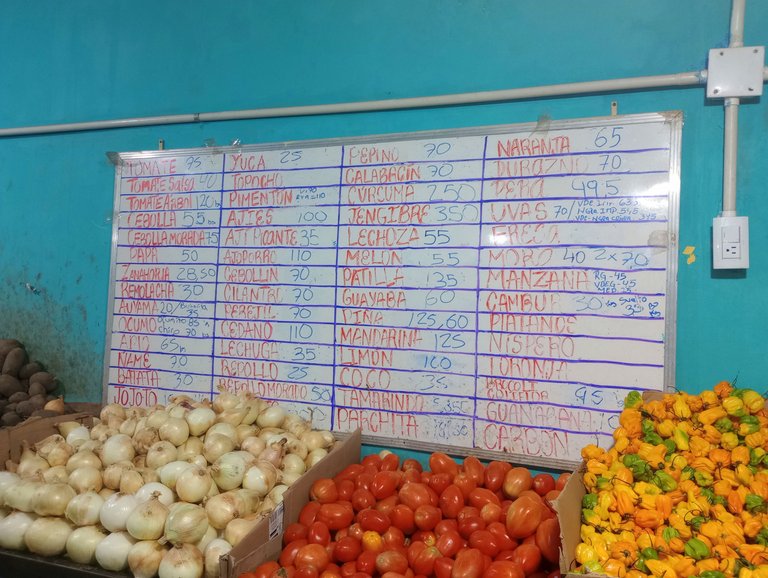 TOMATE 75
TOMATE Salsa 40
TOMATE Arbol 120
CEBOLLA 55
CEBOLLA MORADA 75
PAPA 50
ZANAHORIA 28,50
REMOLACHA 30
AUYAMA 20
OCUMO 85
chino 70
APIO 65
ÑAME 70
BATATA 30
JOJOTO
YUCA 25
TOPOCHO
PIMENTÓN
AJIES 100
AJI PICANTE 35
AJOPORRO 110
CEBOLLIN 70
CILANTRO 70
PEREJIL 70
CEDANO 110
LECHUGA 35
REPOLLO 25
REPOLLO MORADO 50
PEPINO 70
CALABACIN 70
CURCUMA 250
JENGIBRE 350
LECHOZA 55
MELON 55
PATILLA 35
GUAYABA 60
PIÑA 125,60
MANDARINA 125
LIMON 100
COCO 35
TAMARINDO
PARCHITA
NARANJA 65
DURAZNO 70
PERA 495
UVAS 70/
FRECA
MORO 40 2x70
MANZANA RG-45
VDEG-45
CAMBUR 30
PLATANOS
NISPERO
TORONJA
BROCOLI
COLIFLOR 95
GUANABANA
CARBON